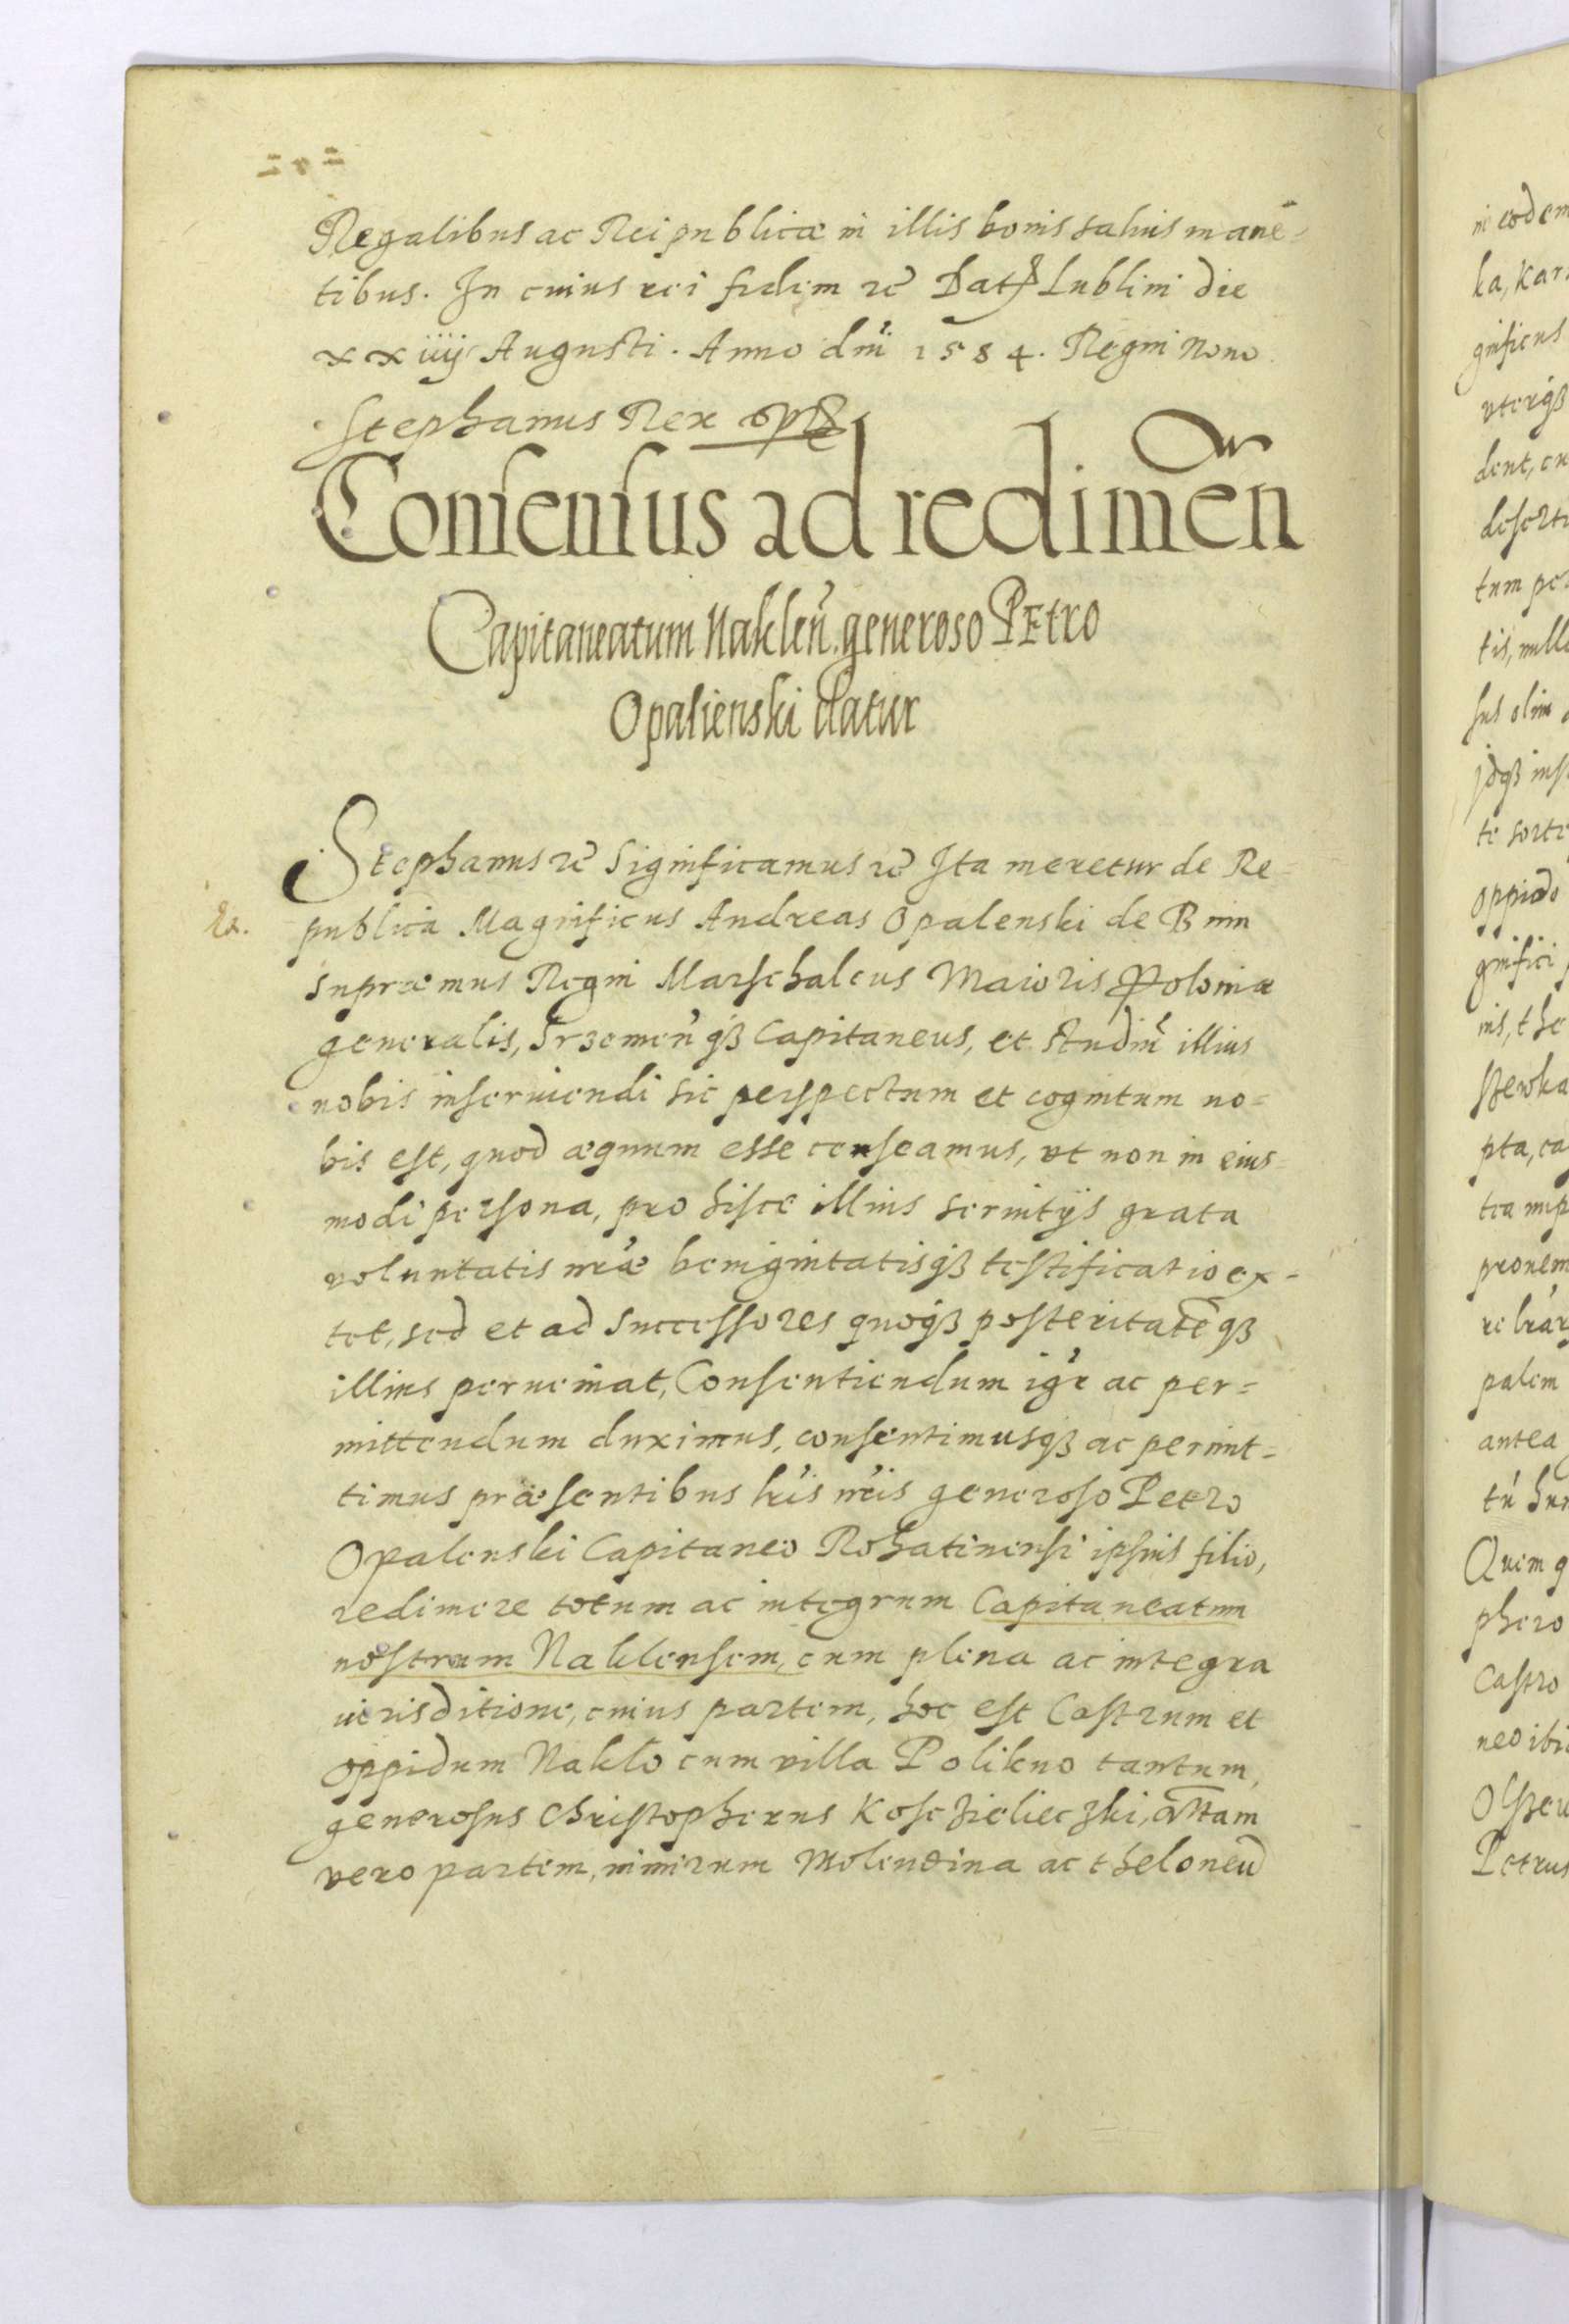 Regalibus ac Reipublicæ in illis bonis saluis manē-
tibus. In cuius rei fidem &c̄ Dat̄ Lublini die
xxiiij Augusti. Anno dñi 1584. Regni Nono
Stephanus Rex
Consensus ad redimen̄
Capitaneatum Naklen̄. generoso PEtro
Opalienski datur
Stephanus &c̄ Significamus &c̄ Ita meretur de Re-
publica Magnificus Andreas Opalenski de Bnin
Supræmus Regni Marschalcus Maioris Poloniæ
generalis, Srzemen̄ qʒ Capitaneus, et studiū illius
nobis inseruiendi sic perspectum et cognitum no=
bis est, quod æquum esse censeamus, vt non in eius=
modi persona, pro hisce illius seruitijs grata
voluntatis nr̄æ benignitatisqʒ testificatio ex-
tet, sed et ad Successores quoqʒ posteritatē qʒ
illius perueniat, Consentiendum igr̄ ac per=
mittendum duximus, consentimusqʒ ac permit=
timus præsentibus lr̄is nr̄is generoso Petro
Opalenski Capitaneo Rohatinensi ipsius filio,
redimere totum ac integrum Capitaneatum
nostrum Naklensem, cum plena ac integra
iurisditione, cuius partem, hoc est Castrum et
oppidum Naklo cum villa Polikno tantum,
generosus Christopherus Kosczielieczki, altam
vero partem, nimirum Molendina ac theloneū
in eodem
ka, Kar
gnificus
vterqʒ
dent, cu
deserti
tum per
tis, nullo
sus olim
jdqʒ inst
te sorte
oppido
gnifici
nis, the
pta, ca
pronem
palem
antea
Quem q
phero
Castro
neo ibi
Petrus